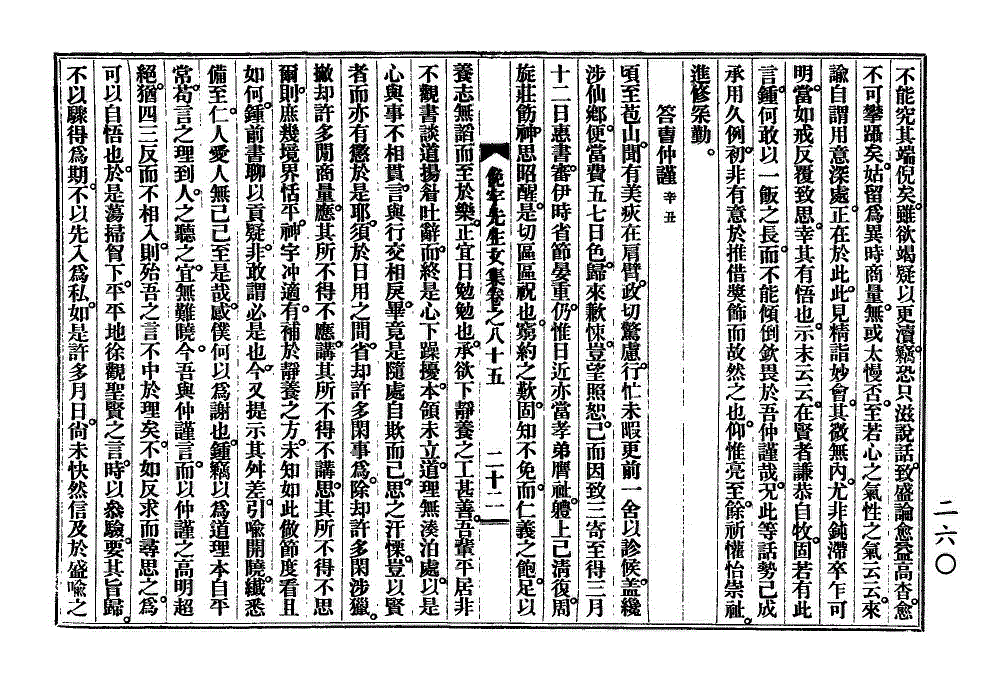 不能究其端倪矣。雖欲竭疑以更瀆。竊恐只滋說話。致盛論愈益高杳。愈
不可攀躡矣。姑留爲異時商量。無或太慢否。至若心之氣性之氣云云。來
諭自謂用意深處。正在於此。此見精詣妙會。其微無內。尤非鈍滯卒乍可
明。當如戒反覆致思。幸其有悟也。示末云云。在賢者謙恭自牧。固若有此
言。鍾何敢以一飯之長。而不能傾倒欽畏於吾仲謹哉。旡此等話勢。已成
承用久例。初非有意於推借奬飾而故然之也。仰惟亮至。餘祈懽怡崇祉。
進修冞勤。
答曹仲謹 辛丑
頃至苞山。聞有美疢在肩臂。政切驚慮。行忙未暇更前一舍以診候。蓋纔
涉仙鄕。便當費五七日色。歸來歉悚。豈望照恕。已而因致三寄至。得三月
十二日惠書。審伊時省節晏重。仍惟日近亦當孝弟膺祉。體上已淸復。周
旋莊飭。神思昭醒。是切區區祝也。窮約之歎。固知不免。而仁義之飽。足以
俛宇先生文集卷之八十五 二十二
養志無謟而至於樂。正宜日勉勉也。承欲下靜養之工甚善。吾輩平居。非
不觀書談道揚眉吐辭。而終是心下躁擾。本領未立。道理無湊泊處。以是
心與事不相貫。言與行交相戾。畢竟是隨處自欺而已。思之汗慄。豈以賢
者而亦有懲於是耶。須於日用之間。省却許多閑事爲。除却許多閑涉獵。
撤却許多閒商量。應其所不得不應。講其所不得不講。思其所不得不思
爾。則庶幾境界恬平。神字冲適。有補於靜養之方。未知如此做節度看且
如何。鍾前書聊以貢疑。非敢謂必是也。今又提示其舛差。引喩開曉。纖悉
備至。仁人愛人無己。已至是哉。感僕何以爲謝也。鍾竊以爲道理本自平
常。苟言之理到。人之聽之。宜無難曉。今吾與仲謹言。而以仲謹之高明超
絕。猶四三反而不相入。則殆吾之言不中於理矣。不如反求而尋思之。爲
可以自悟也。於是蕩掃胷下。平平地徐觀聖賢之言。時以叅驗。要其旨歸。
不以驟得爲期。不以先入爲私。如是許多月日。尙未快然信及於盛喩之
二六〇